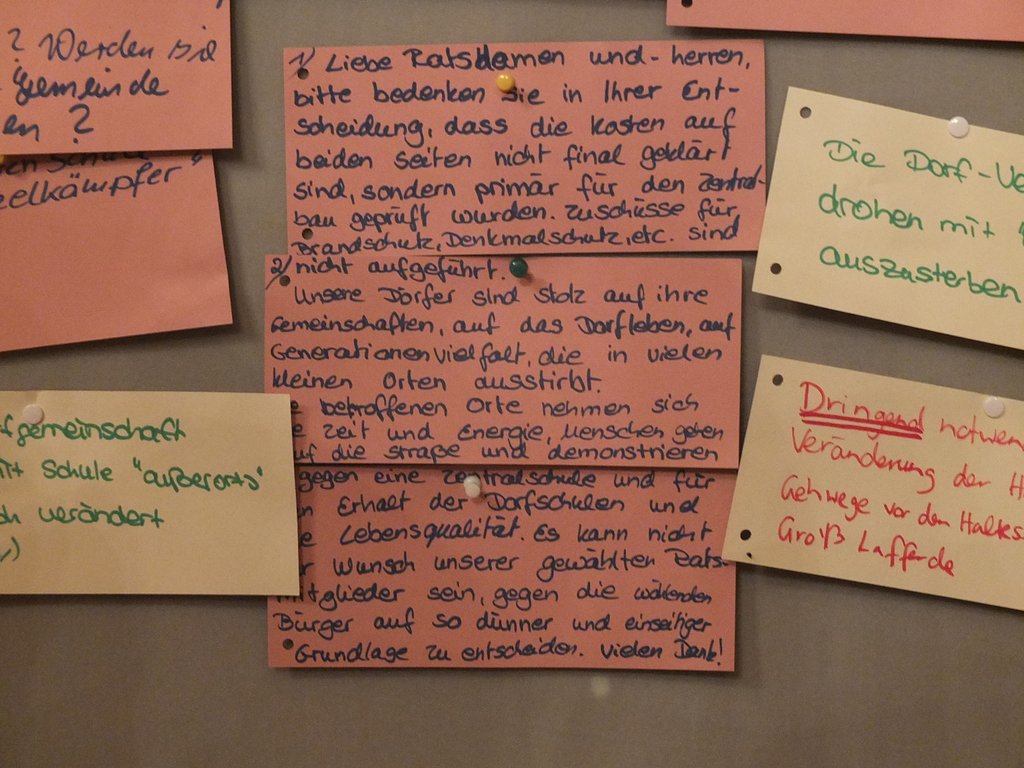 ? Werden sie
Gemeinde
en ?
eelkämpfer"
1) Liebe Ratsdamen und -herren,
bitte bedenken Sie in Ihrer Ent-
scheidung, dass die Kosten auf
beiden Seiten nicht final geklärt
sind, sondern primär für den Zentral-
bau geprüft wurden. Zuschüsse für
Brandschutz, Denkmalschutz, etc. sind
2) nicht aufgeführt.
Unsere Dörfer sind stolz auf ihre
Gemeinschaften, auf das Dorfleben, auf
Generationenvielfalt, die in vielen
kleinen Orten ausstirbt.
e betroffenen Orte nehmen sich
e Zeit und Energie, Menschen gehen
uf die Straße und demonstrieren
gegen eine Zentralschule und für
n Erhalt der Dorfschulen und
e Lebensqualität. Es kann nicht
r Wunsch unserer gewählten Rats-
mitglieder sein, gegen die wählenden
Bürger auf so dünner und einseitiger
Grundlage zu entscheiden. Vielen Dank!
fgemeinschaft
it Schule "außerorts"
ch verändert
Die Dorf-Ve
drohen mit
auszusterben
Dringend notwen
Veränderung der H
Gehwege vor den Haltes
Groß Lafferde